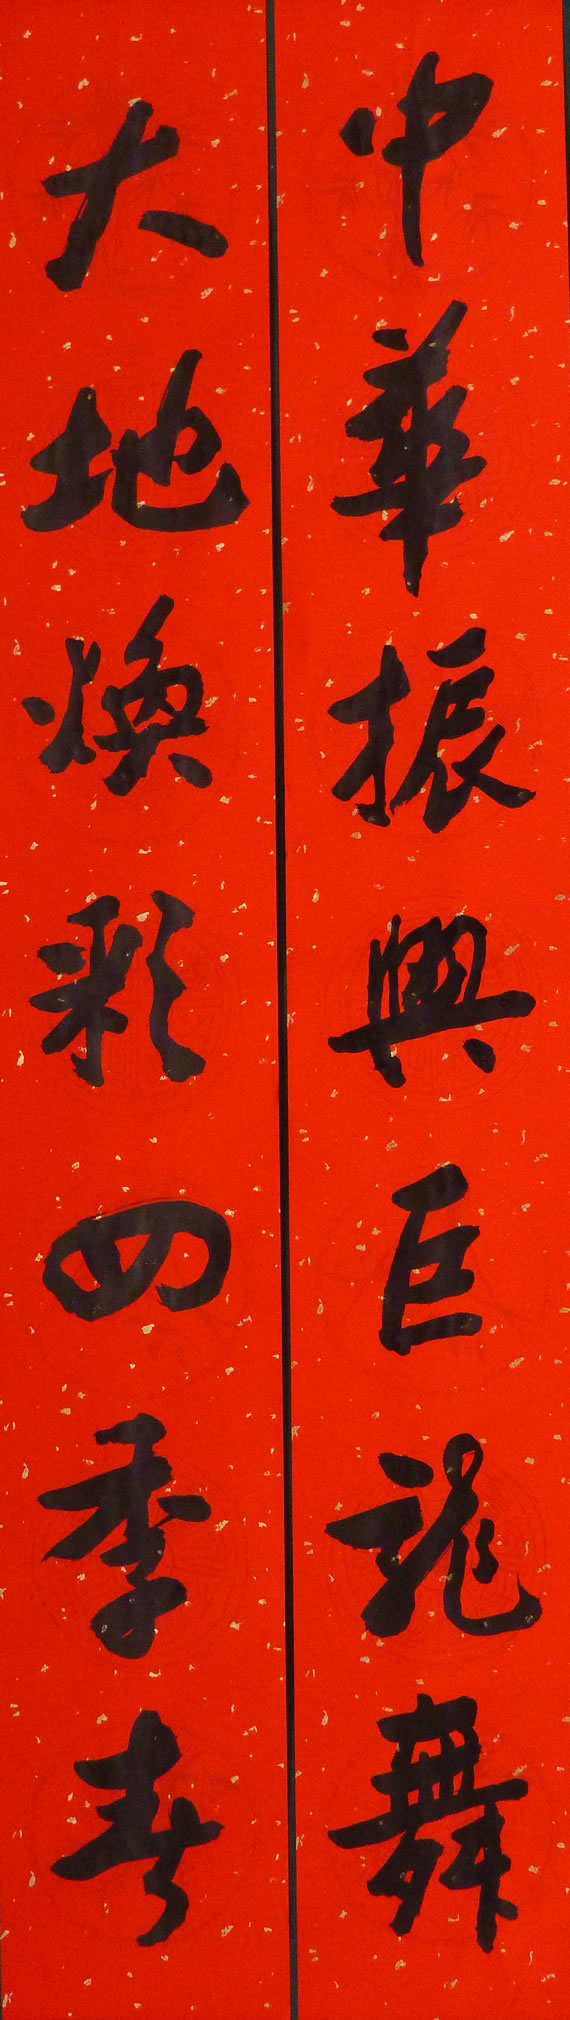 中華振興巨龍舞
大地煥彩四季春